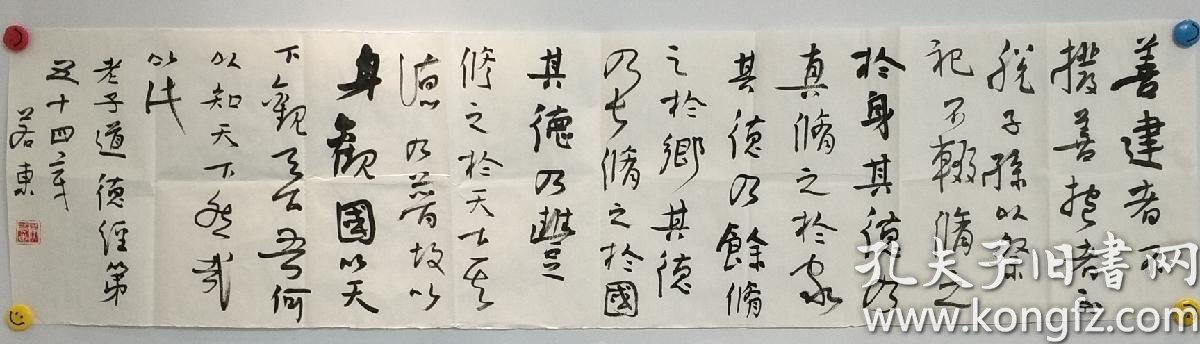 善建者不
拔善抱者不
脱子孫以祭
祀不輟脩之
於身其德乃
真脩之於家
其德乃餘脩
之於鄉其德
乃長脩之於國
其德乃豐
脩之於天下其
德乃普故以
身觀國以天
下觀天下吾何
以知天下然哉
以此
老子道德經第
五十四章
若東
孔夫子旧書网
www.kongfz.com